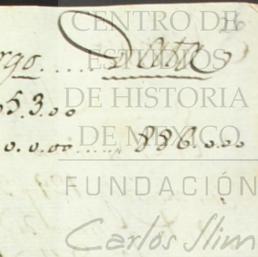 rgo.....Data
053.00
0.0.00......886.0.00
CENTRO DE
ESTUDIOS
DE HISTORIA
DE MÉXICO
FUNDACIÓN
Carlos Slim